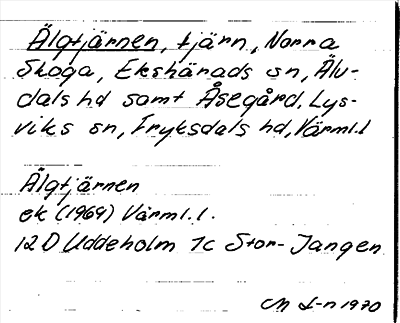 Älgtjärnen, tjärn, Norra
Skoga, Ekshärads sn, Älv-
dals hd samt Åsegård, Lys-
viks sn, Fryksdals hd, Värml.l
Älgtjärnen
ek (1969) Värml.l.
12 D Uddeholm 7c Stor-Jangen
CM L-n 1970